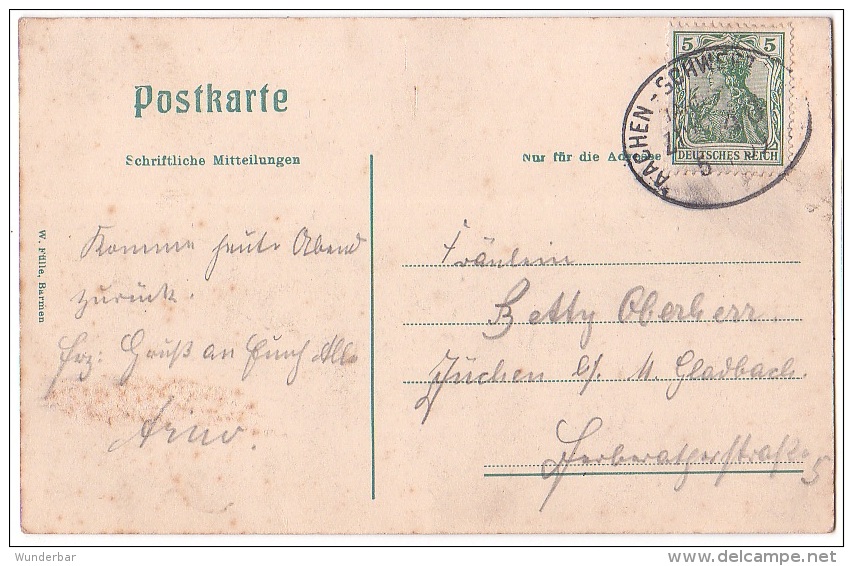 Postkarte
Schriftliche Mitteilungen
Nur für die Adresse
5 5
DEUTSCHES REICH
AACHEN-SCHWE
5
W. Fülle, Barmen
Komme heute Abend
zurück.
Hrz: Gruß an Euch Alle
Arno.
Fräulein
Betty Oberherr
Jüchen b/. M. Gladbach
5
Wunderbar
delcampe.net